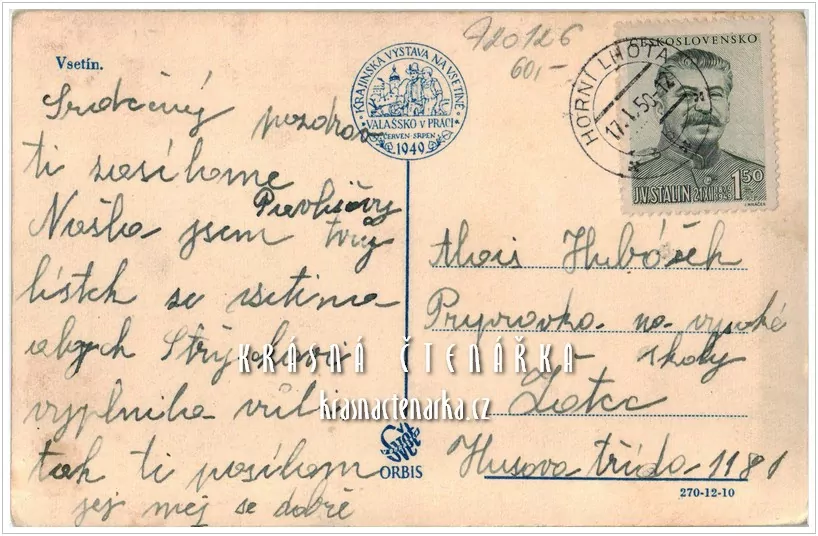 Vsetín.
Srdečný pozdrav
ti zasíláme
Pavlišovy
Našla jsem tvůj
lístek se vsetina
abych Strýčkovi
vyplnila vůli
tak ti posílám
jej měj se dobře
KRAJINSKÁ VÝSTAVA NA VSETÍNĚ
VALAŠSKO V PRÁCI
ČERVEN-SRPEN
1949
720126
60,-
HORNÍ LHOTA
17.I.50-12
ČESKOSLOVENSKO
J.V. STALIN 21.XII.1949
1.50
Alois Hubáček
Prypravka na vysoké
školy
Žatec
Husova třída 1181
KRÁSNÁ ČTENÁŘKA
krasnactenarka.cz
ORBIS
270-12-10